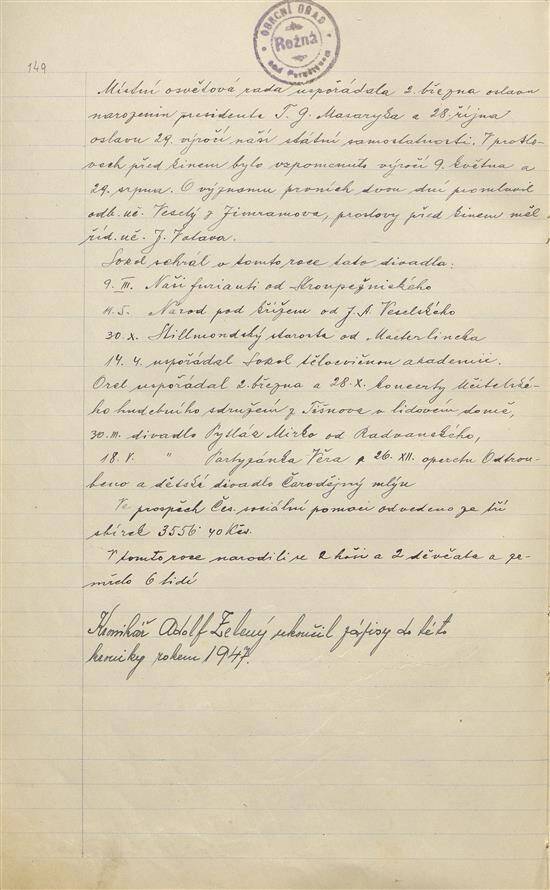 OBECNÍ ÚŘAD
Rožná
149
Místní osvětová rada uspořádala 2. března oslavu
narozenin presidenta T. G. Masaryka a 28. října
oslavu 29. výročí naší státní samostatnosti. V proslo-
vech před kinem bylo vzpomenuto výročí 9. května a
29. srpna. O významu prvních dvou dní promluvil
odb. uč. Veselý z Jimramova, proslovy před kinem měl
říd. uč. J. Votava.
Sokol sehrál v tomto roce tato divadla:
9. III. Naši furianti od Stroupežnického
4. 5. Národ pod křížem od J. A. Veselského
30. X. Stillmondský starosta od Maeterlincka
14. 4. uspořádal Sokol tělocvičnou akademii.
Orel uspořádal 2. března a 28. X. koncerty Učitelské-
ho hudebního sdružení z Tišnova v lidovém domě,
30. III. divadlo Pytlák Mirko od Radvanského,
18. V. " Partyzánka Věra a 26. XII. operetu Odtrou-
beno a dětské divadlo Čarodějný mlýn
Ve prospěch Čes. sociální pomoci odvedeno ze tří
sbírek 3556.40 Kčs.
V tomto roce narodili se 2 hoši a 2 děvčata a ze-
mřelo 6 lidí
Kronikář Adolf Zelený ukončil zápisy do této
kroniky rokem 1947.